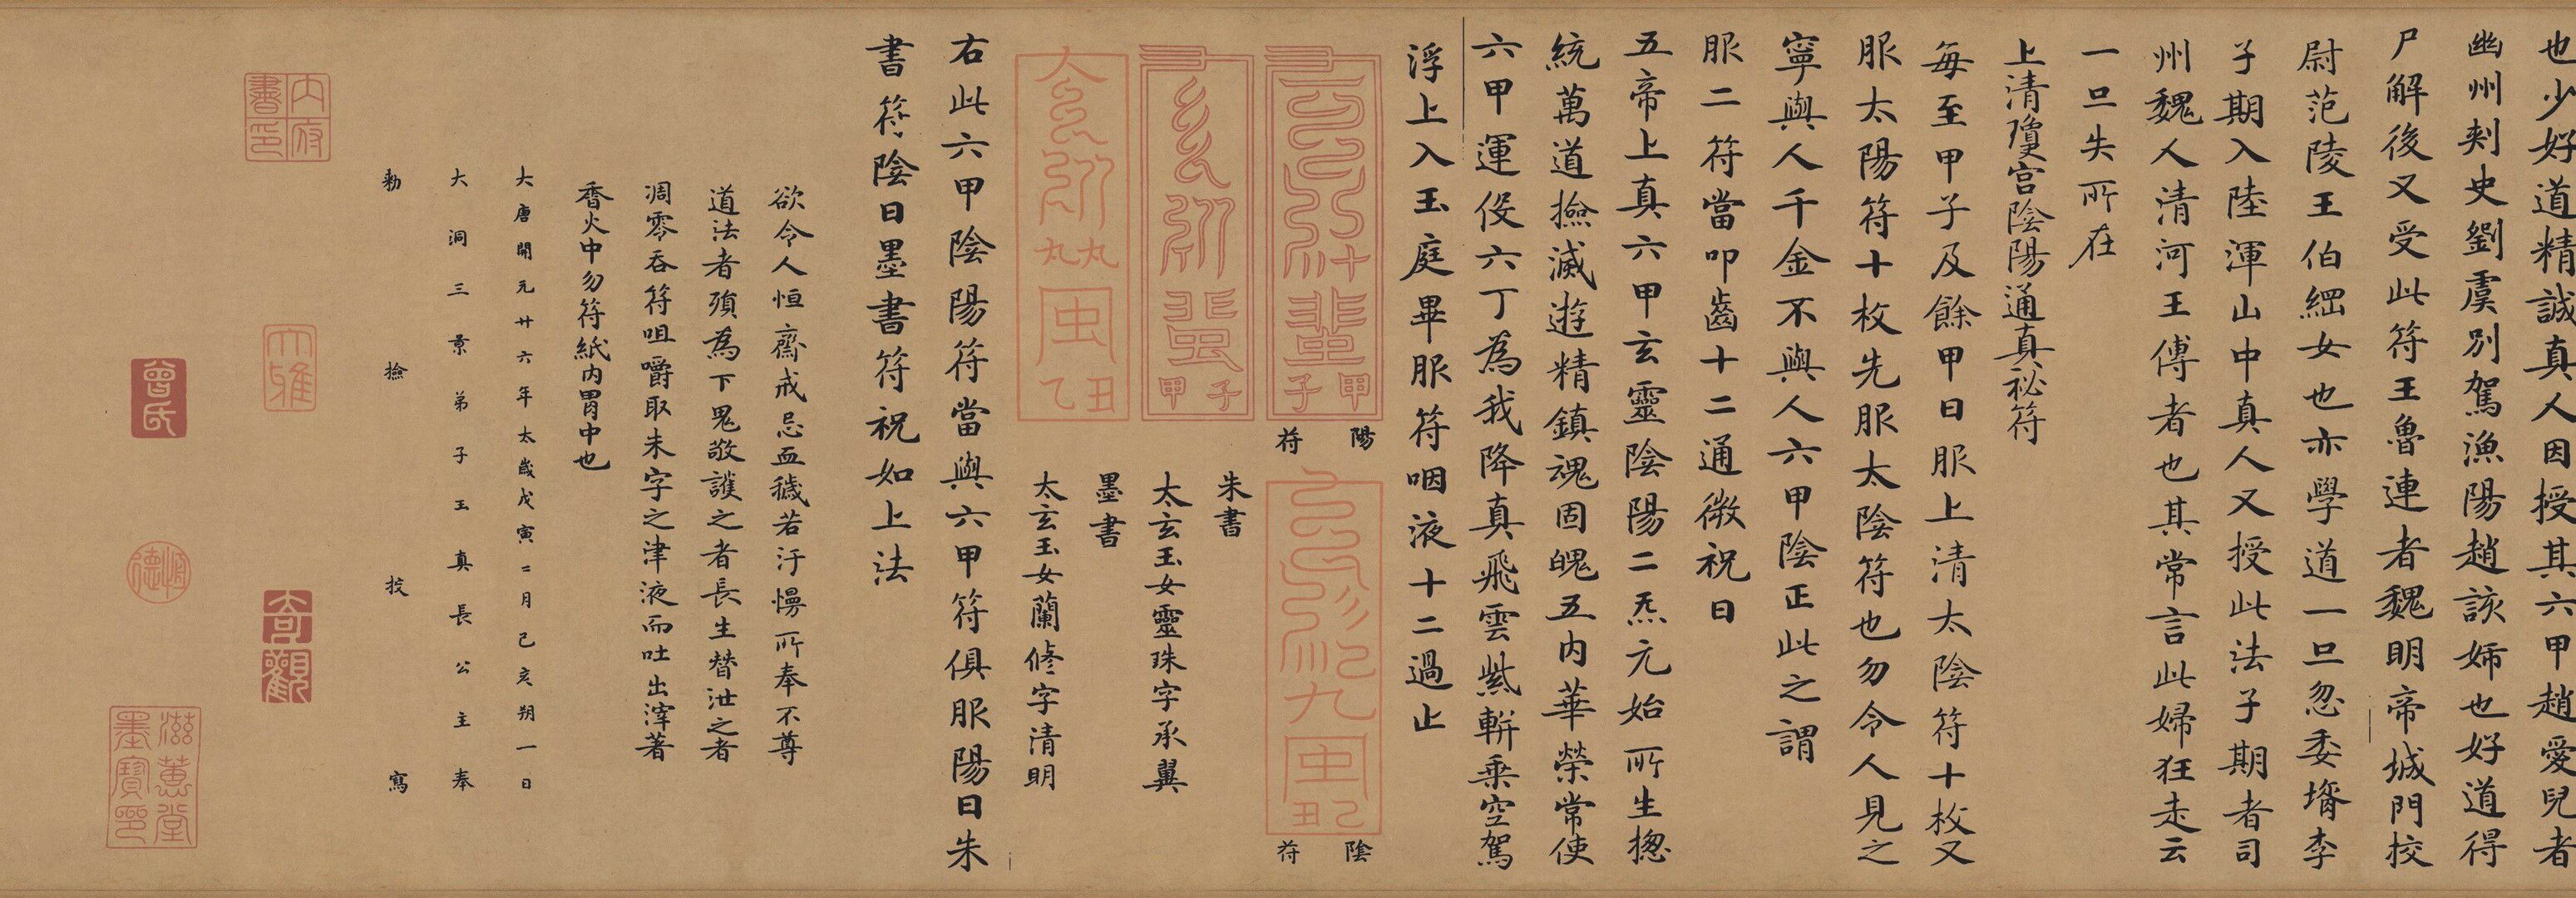 也少好道精誠真人因授其六甲趙愛兒者
幽州刾史劉虞別駕漁陽趙該姊也好道得
尸解後又受此符王魯連者魏明帝城門校
尉范陵王伯綱女也亦學道一旦忽委壻李
子期入陸渾山中真人又授此法子期者司
州魏人清河王傅者也其常言此婦狂走云
一旦失所在
上清瓊宫陰陽通真祕符
每至甲子及餘甲日服上清太陰符十枚又
服太陽符十枚先服太陰符也勿令人見之
寧與人千金不與人六甲陰正此之謂
服二符當叩齒十二通微祝曰
五帝上真六甲玄靈陰陽二炁元始所生揔
統萬道撿滅遊精鎮魂固魄五内華榮常使
六甲運役六丁為我降真飛雲紫軿乗空駕
浮上入玉庭畢服符咽液十二過止
甲子
陽符
己丑
陰符
子甲
朱書
太玄玉女靈珠字承翼
丑乙
墨書
太玄玉女蘭修字清明
右此六甲陰陽符當與六甲符俱服陽日朱
書符陰日墨書符祝如上法
欲令人恒齋戒忌血穢若汙慢所奉不尊
道法者須為下鬼敬護之者長生替泄之者
凋零吞符咀嚼取朱字之津液而吐出滓著
香火中勿符紙内胃中也
大唐開元廿六年太歲戊寅二月己亥朔一日
大洞三景弟子玉真長公主奉
勑撿挍寫
内府書印
大雅
奇觀
曾氏
滋蕙堂墨寶印